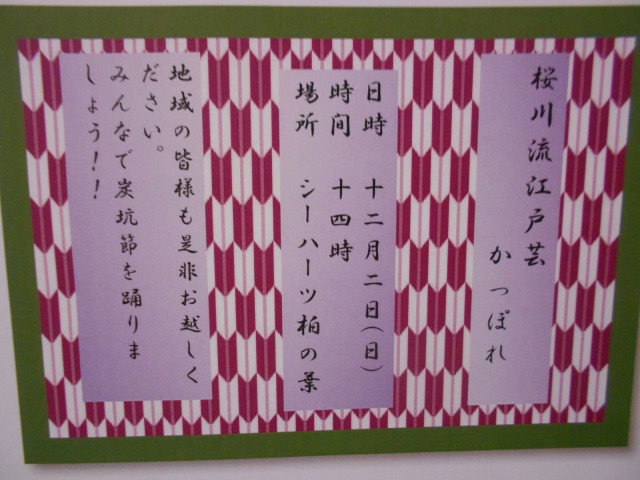 桜川流江戸芸
かっぽれ
日時 十二月二日(日)
時間 十四時
場所 シーハーツ柏の葉
地域の皆様も是非お越しく
ださい。
みんなで炭坑節を踊りま
しょう!!